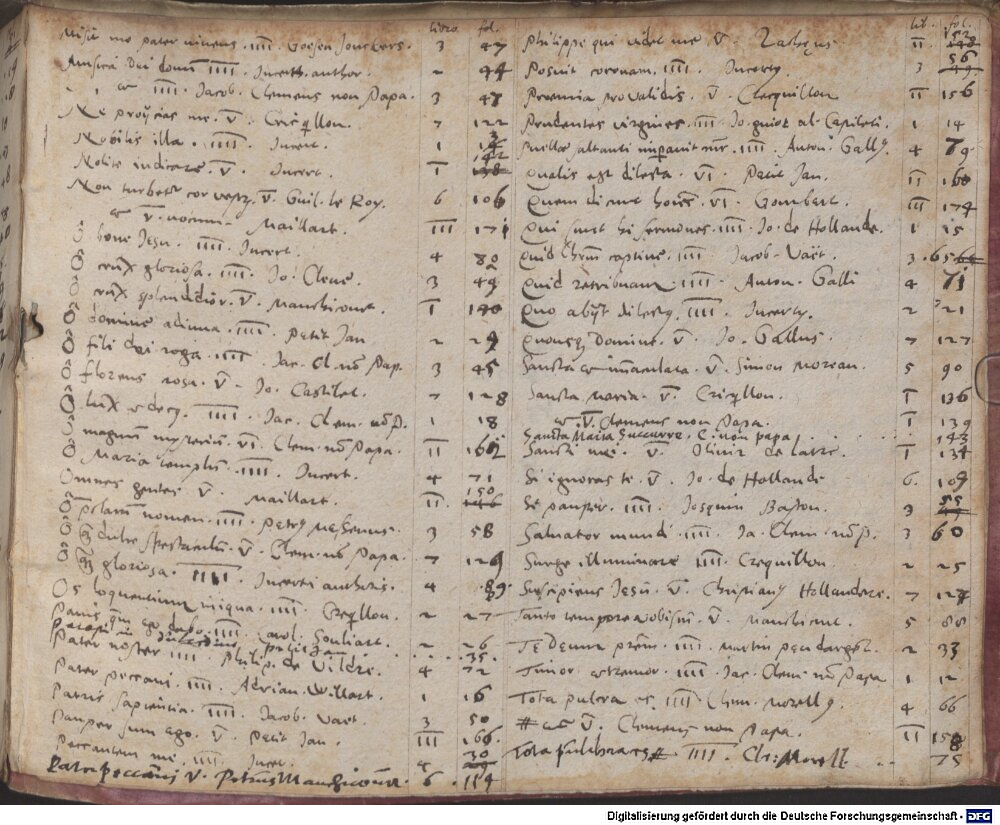 libro. fol.
Misit me pater vivens. IIII. Goesen Jonckers. 3 47
Musica Dei donum IIII. Incerti author. 2 44
IIII. Jacob. Clemens non Papa. 3 47
Ne proijcias me. V. Cricquillon. 7 122
Nobilis illa. IIII. Incert. 1
Nolite iudicare. V. Incert. I 142
Non turbetur cor vestrum. V. Guil. le Roy. 6 106
V. vocum. Maillart. III 171
O bone Jesu. IIII. Incert. 4 80
O crux gloriosa. IIII. Jo. Cleve. 3 49
O crux splendidior. V. Manchicourt. I 140
O domine adiuva. IIII. Petit Jan 2 29
O fili dei roga. IIII. Jac. Cl. non Pap. 3 45
O florens rosa. V. Jo. Castilet. 7 128
O lux et decus. IIII. Jac. Clem. non P. 1 18
O magnum mysterium. VI. Clem. non Papa. II 162
O Maria templum. IIII. Incert. 4 71
Omnes gentes V. Maillart. II 150 146
O nomen. IIII. Petrus Messenus. 3 58
O quam dulce spectaculum. V. Clem. non Papa. 7 129
O quam gloriosa. IIII. Incerti authoris. 4 89
Os loquentium iniqua. IIII. Crequillon. 2 27
Panis quem ego dabo. IIII. Carol. Souliart. 2 26
35
Pater noster IIII. Philip. de Vildre. 4 72
Pater peccavi. IIII. Adrian. Willart. 1 16
Patris sapientia. IIII. Jacob. Vaet. 3 50
Pauper sum ego. V. Petit Jan. III 166
Peccantem me. IIII. Incert. 4 30
Pater peccavi V. Petrus Manchicourt. 6 114
lib. fol.
Philippe qui videt me. V. Zacheus II
Posuit coronam. IIII. Incertus. 3 56
Praemia pro validis. V. Crecquillon II 156
Prudentes virgines. IIII. Jo. guiot al. Castileti. 1 14
Puellae saltanti imperavit mater. IIII. Anton. Gallus 4 79
Qualis est dilecta. VI. Petit Jan. II 160
Quem dicunt homines. VI. Gombert. III 174
Qui sunt hi sermones. IIII. Jo. de Hollande. 1 15
Quid Christum captive. IIII. Jacob. Vaët. 3 65
Quid retribuam IIII. Anton. Galli 4 71
Quo abijt dilectus. IIII. Incertus. 2 21
Quousque Domine. V. Jo. Gallus. 7 127
Sancta et immaculata. V. Simon Moreau. 5 90
Sancta Maria. V. Cricquillon. I 136
V. Clemens non Papa. I 139
Sancta Maria Succurre. C. non papa 143
Sancti mei. V. Olivir de latre. I 134
Si ignoras te. V. Jo. de Hollande 6. 109
Se pauper. IIII. Josquin Baston. 3 55
Salvator mundi. IIII. Ja. Clem. non P. 3 60
Surge illuminare IIII. Crequillon. 2 25
Suscipiens Jesum. V. Christianus Hollandere. 7 124
Tanto tempore vobiscum. V. Manchicurt. 5 88
Te Deum patrem. IIII. Martin peudargent. 2 33
Timor et tremor. IIII. Jac. Clem. non Papa 1 12
Tota pulcra es. IIII. Clem. Morellus. 4 66
V. Clemens non Papa. II 158
Tota pulchra es IIII. Cle: Morell 75
Digitalisierung gefördert durch die Deutsche Forschungsgemeinschaft - DFG